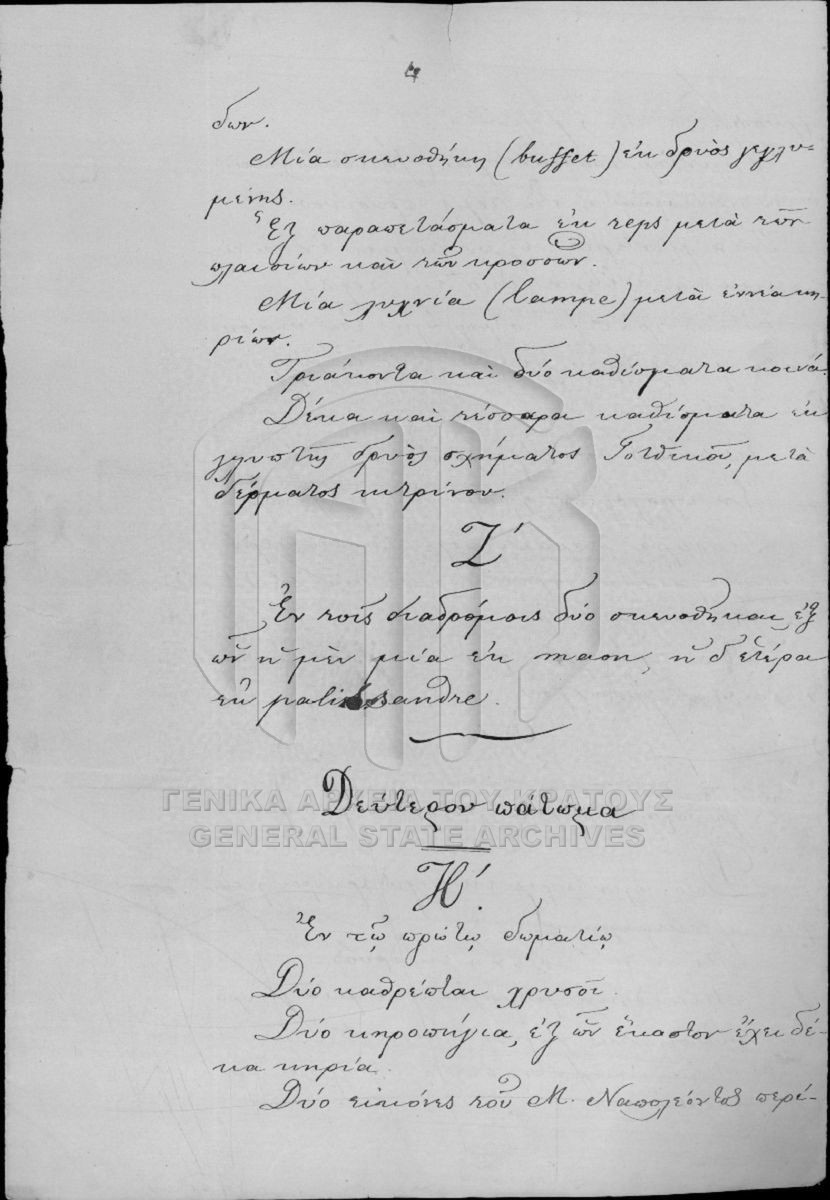 4
δων.
Μία σκευοθήκη (buffet) ἐκ δρυὸς γεγλυ-
μένης.
Ἓξ παραπετάσματα ἐκ reps μετὰ τῶν
πλαισίων καὶ τῶν κροσσῶν.
Μία λυχνία (lampe) μετὰ ἐννέα κη-
ρίων.
Τριάκοντα καὶ δύο καθίσματα κοινά.
Δέκα καὶ τέσσαρα καθίσματα ἐκ
γλυπτῆς δρυὸς σχήματος Γοτθικοῦ, μετὰ
δέρματος κιτρίνου.
Ζ΄
Ἐν τοῖς διαδρόμοις δύο σκευοθῆκαι, ἐξ
ὧν ἡ μὲν μία ἐκ μαόν, ἡ δ' ἑτέρα
ἐκ palissandre.
ΓΕΝΙΚΑ ΑΡΧΕΙΑ ΤΟΥ ΚΡΑΤΟΥΣ
Δεύτερον πάτωμα
GENERAL STATE ARCHIVES
Η΄.
Ἐν τῷ πρώτῳ δωματίῳ
Δύο καθρέπται χρυσοῖ.
Δύο κηροπήγια, ἐξ ὧν ἕκαστον ἔχει δέ-
κα κηρία.
Δύο εἰκόνες τοῦ Μ. Ναπολέοντος περι-